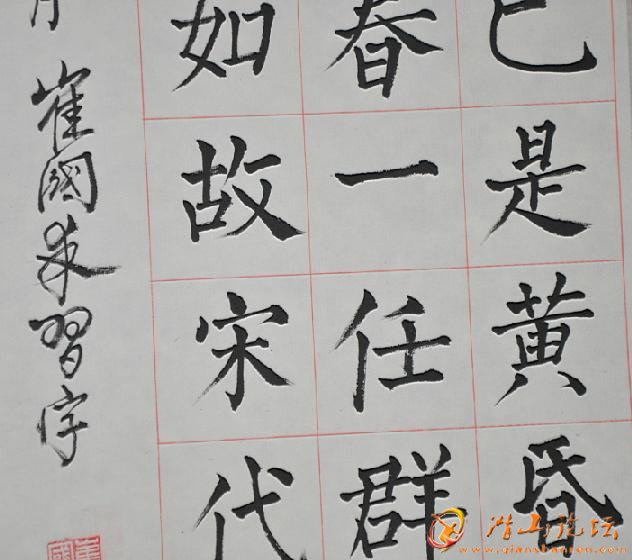 已是黄昏
春一任群
如故宋代
月 崔國習字
潜山论坛